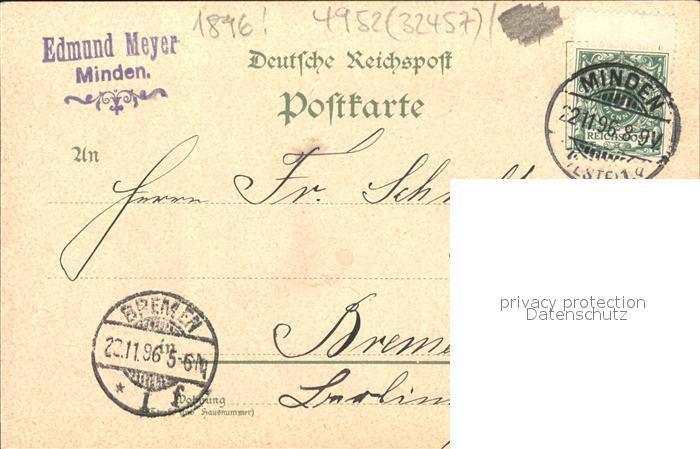 1896! 4952(32457)/
Edmund Meyer
Minden.
Deutsche Reichspost
Postkarte
MINDEN
22.11.96.8-9V
REICHSPOST
An
Herrn Fr.
privacy protection
Datenschutz
BREMEN
22.11.96 5-6N
in
* 1 f
Wohnung
(Straße und Hausnummer)